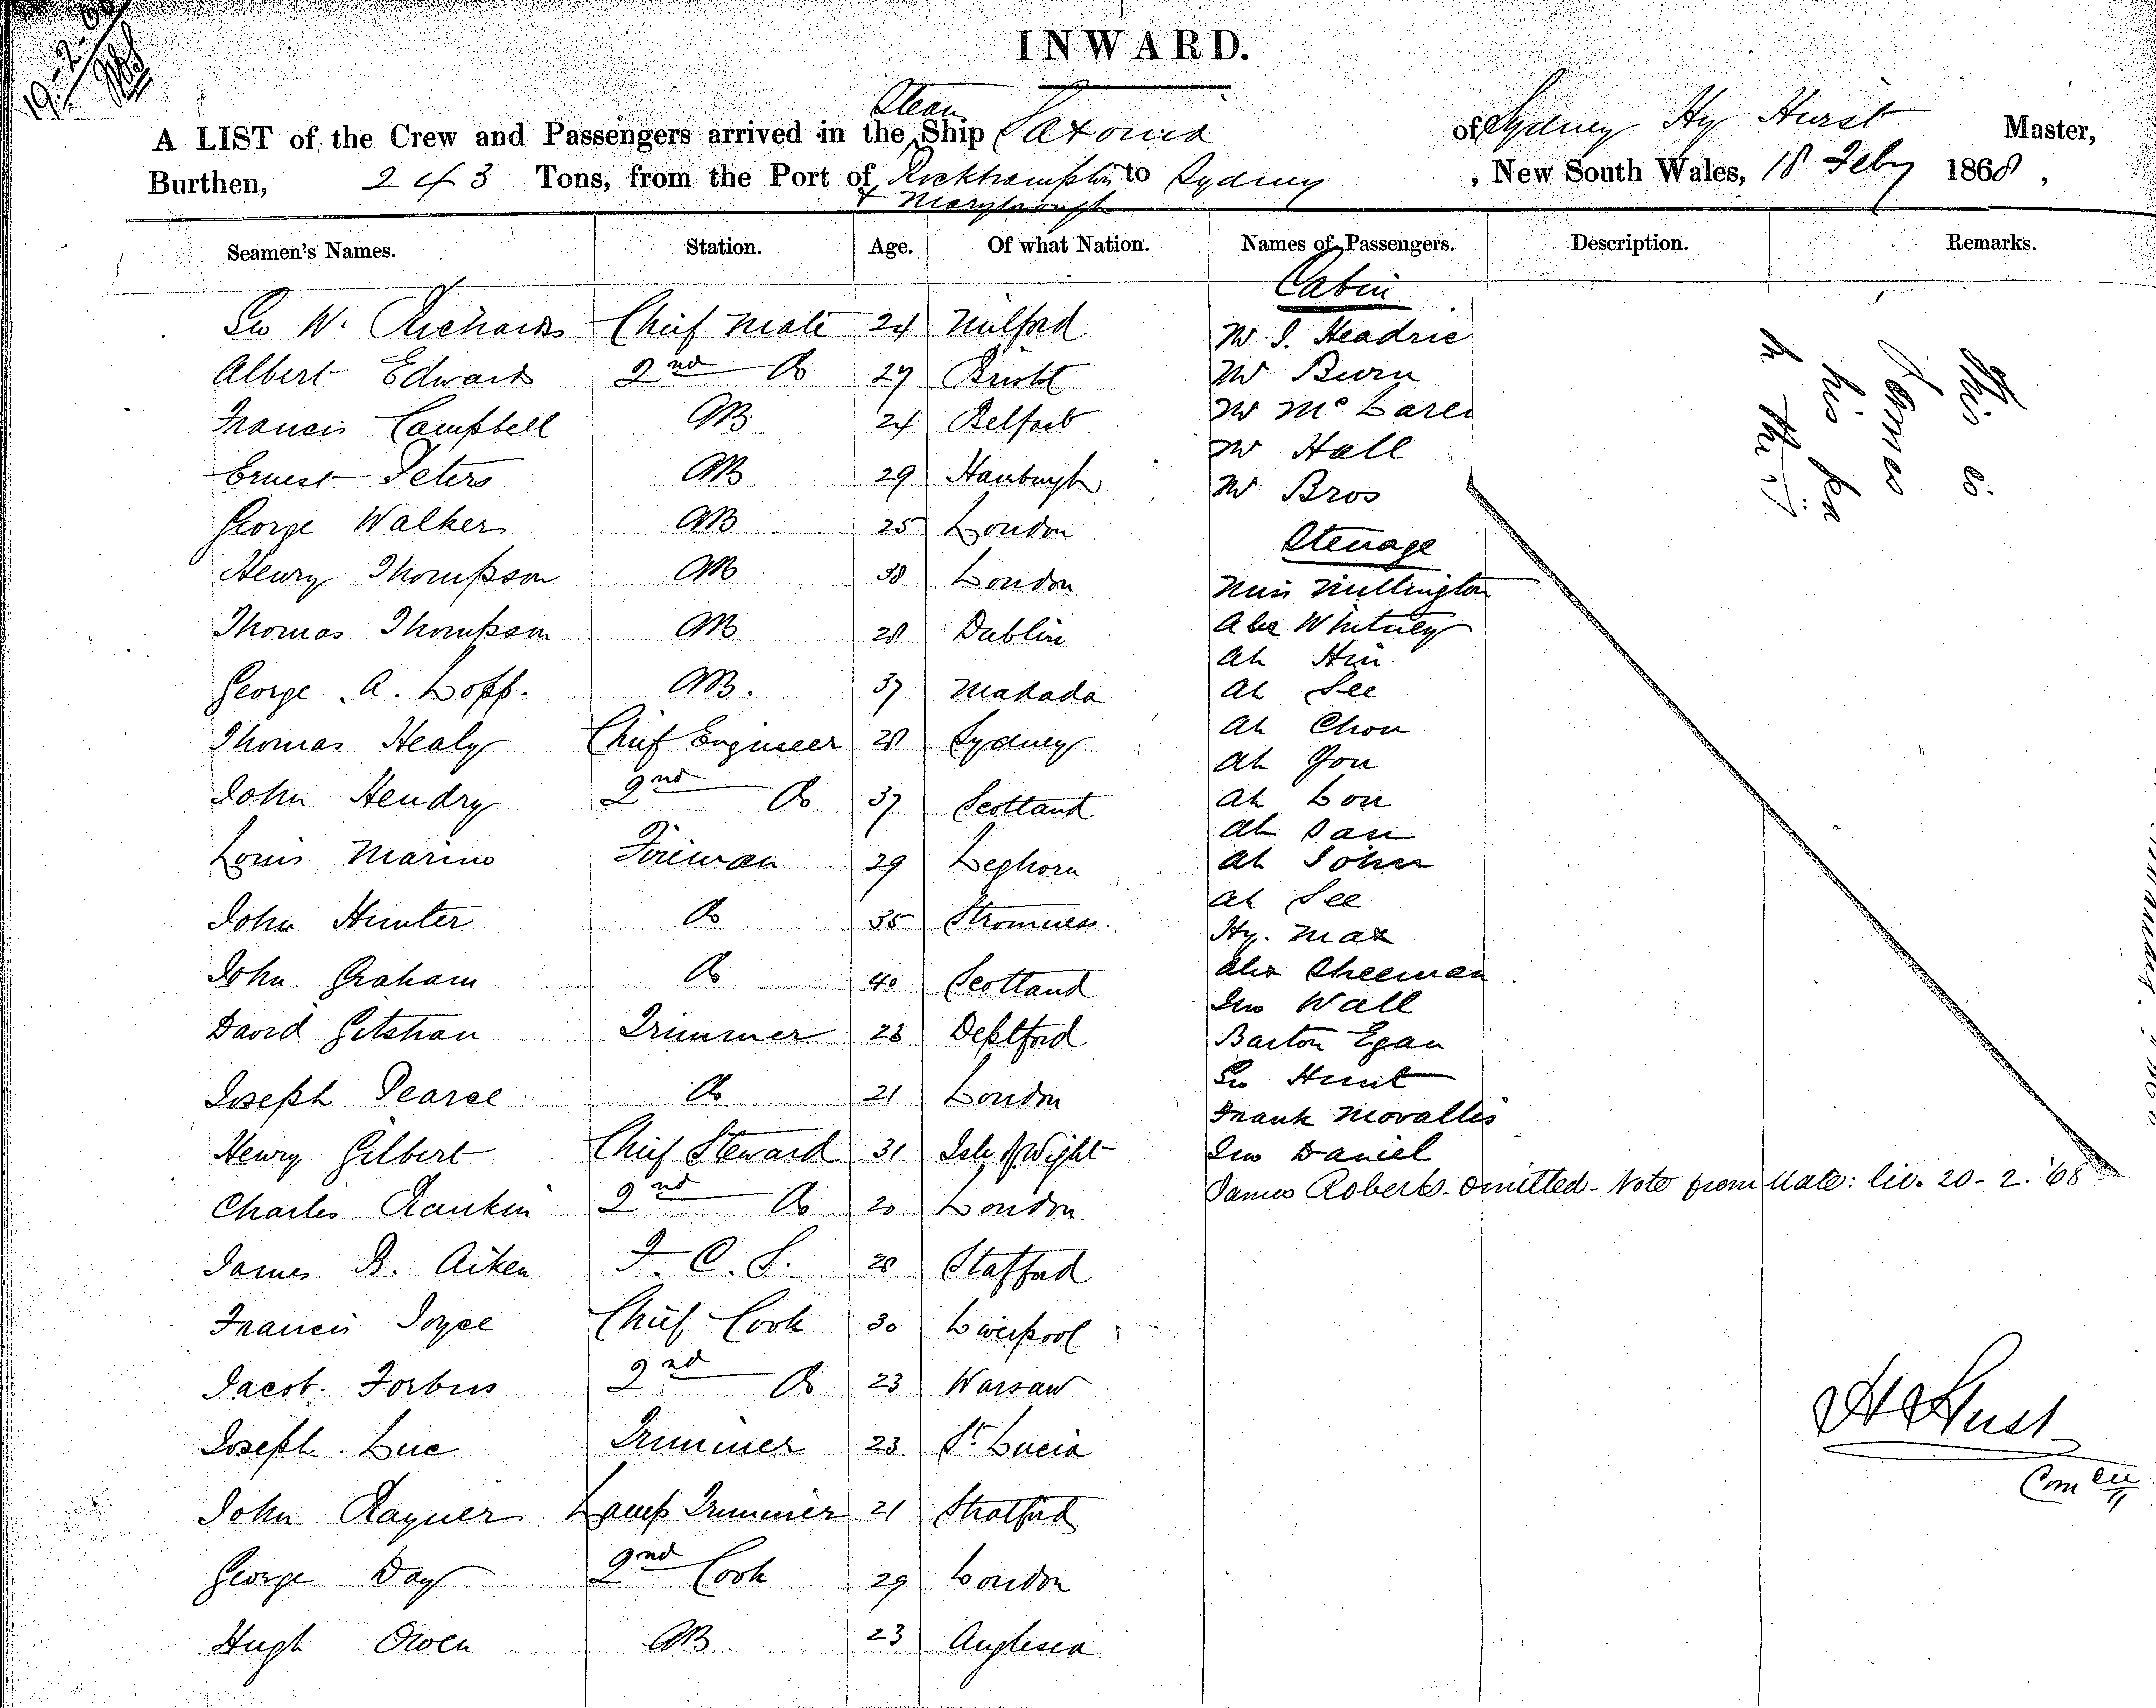 19-2-68
INWARD.
Steam
A LIST of the Crew and Passengers arrived in the Ship Saxonia of Sydney Hy Hurst Master,
Burthen, 243 Tons, from the Port of Rockhampton to Sydney , New South Wales, 18 Feby 1868,
& Maryborough
Seamen's Names. Station. Age. Of what Nation. Names of Passengers. Description. Remarks.
Cabin
Geo W. Richards Chief Mate 24 Milford Mr J. Headric
Albert Edwards 2nd Do 27 Bristol Mr Burn
Francis Campbell AB 24 Belfast Mr McLaren
Mr Hall
Ernest Peters AB 29 Hamburgh Mr Bros
George Walker AB 25 London Steerage
Henry Thompson AB 38 London Miss Millington
Thomas Thompson AB 28 Dublin Abe Whitney
Ah Hin
George A. Loff. AB. 37 Ah See
Thomas Healy Chief Engineer 28 Sydney Ah Chou
Ah You
John Hendry 2nd Do 37 Scotland Ah Lou
Ah San
Louis Marino Fireman 29 Leghorn Ah
Ah See
John Hunter Do 35 Stromness. Hy. Max
John Graham Do 40 Scotland Alex Sheeman
Jno Wall
David Gitshan Trimmer 23 Deptford Barton Egan
Joseph Pearce Do 21 London Geo Hunt
Frank Movallis
Henry Gilbert Chief Steward 31 Isle of Wight Jno Daniel
Charles Rankin 2nd Do 20 London James Roberts. omitted. Note from Mate: 20-2.'68
James B. Aitken F. C. S. 28 Stafford
Francis Joyce Chief Cook 30 Liverpool
Jacob Forbus 2nd Do 23 Warsaw
Joseph Luc Trimmer 23 St Lucia
John Rayner Lamp Trimmer 21 Stratford
George Day 2nd Cook 29 London
Hugh Owen AB 23 Anglesea
H Hurst